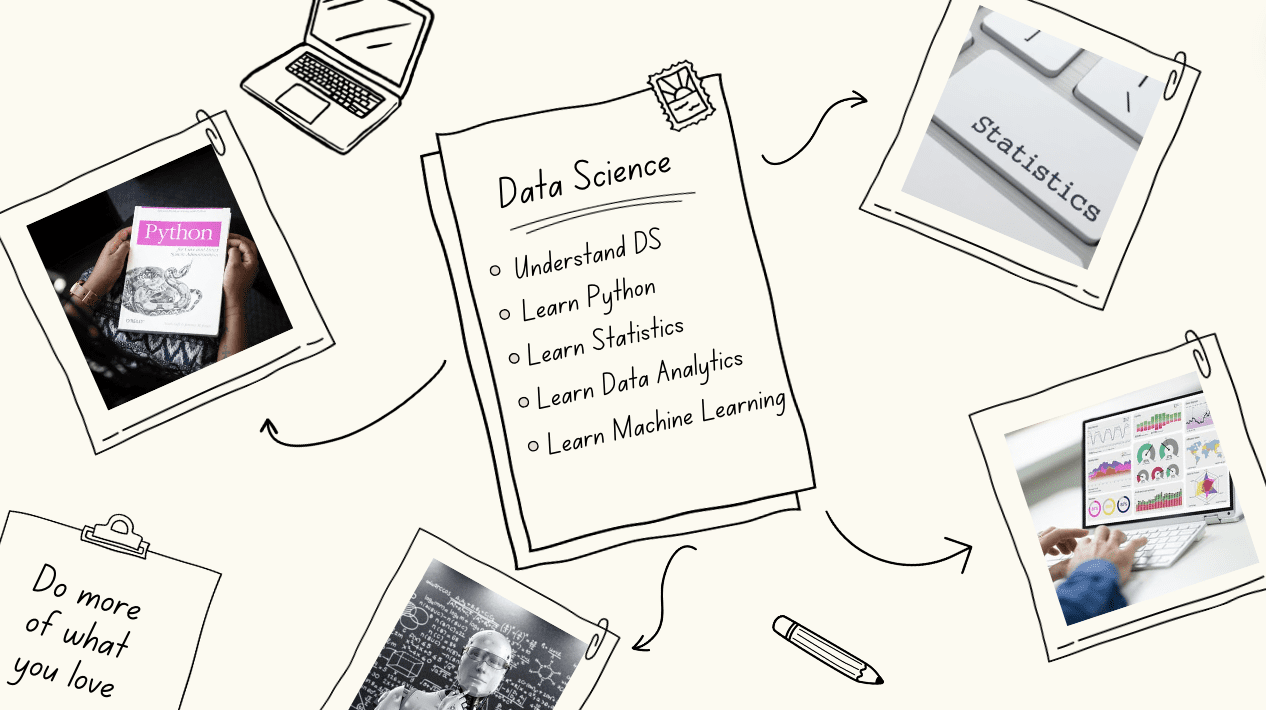 Data Science
Understand DS
Learn Python
Learn Statistics
Learn Data Analytics
Learn Machine Learning
Python
Statistics
Do more
of what
you love